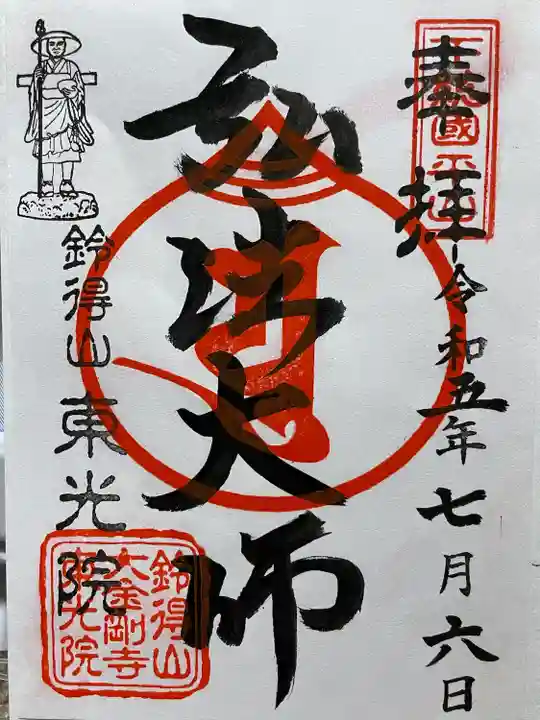 奉拝
令和五年七月六日
弘法大師
鈴得山東光院
鈴得山
大金剛寺
東光院